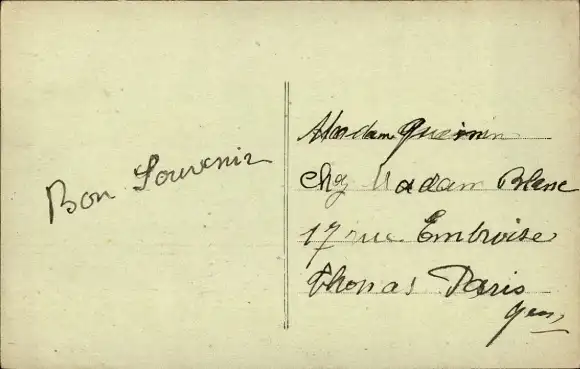 Bon Souvenir
Madam Guérinin
chez Madam Blanc
17 rue Embroise
Thomas Paris